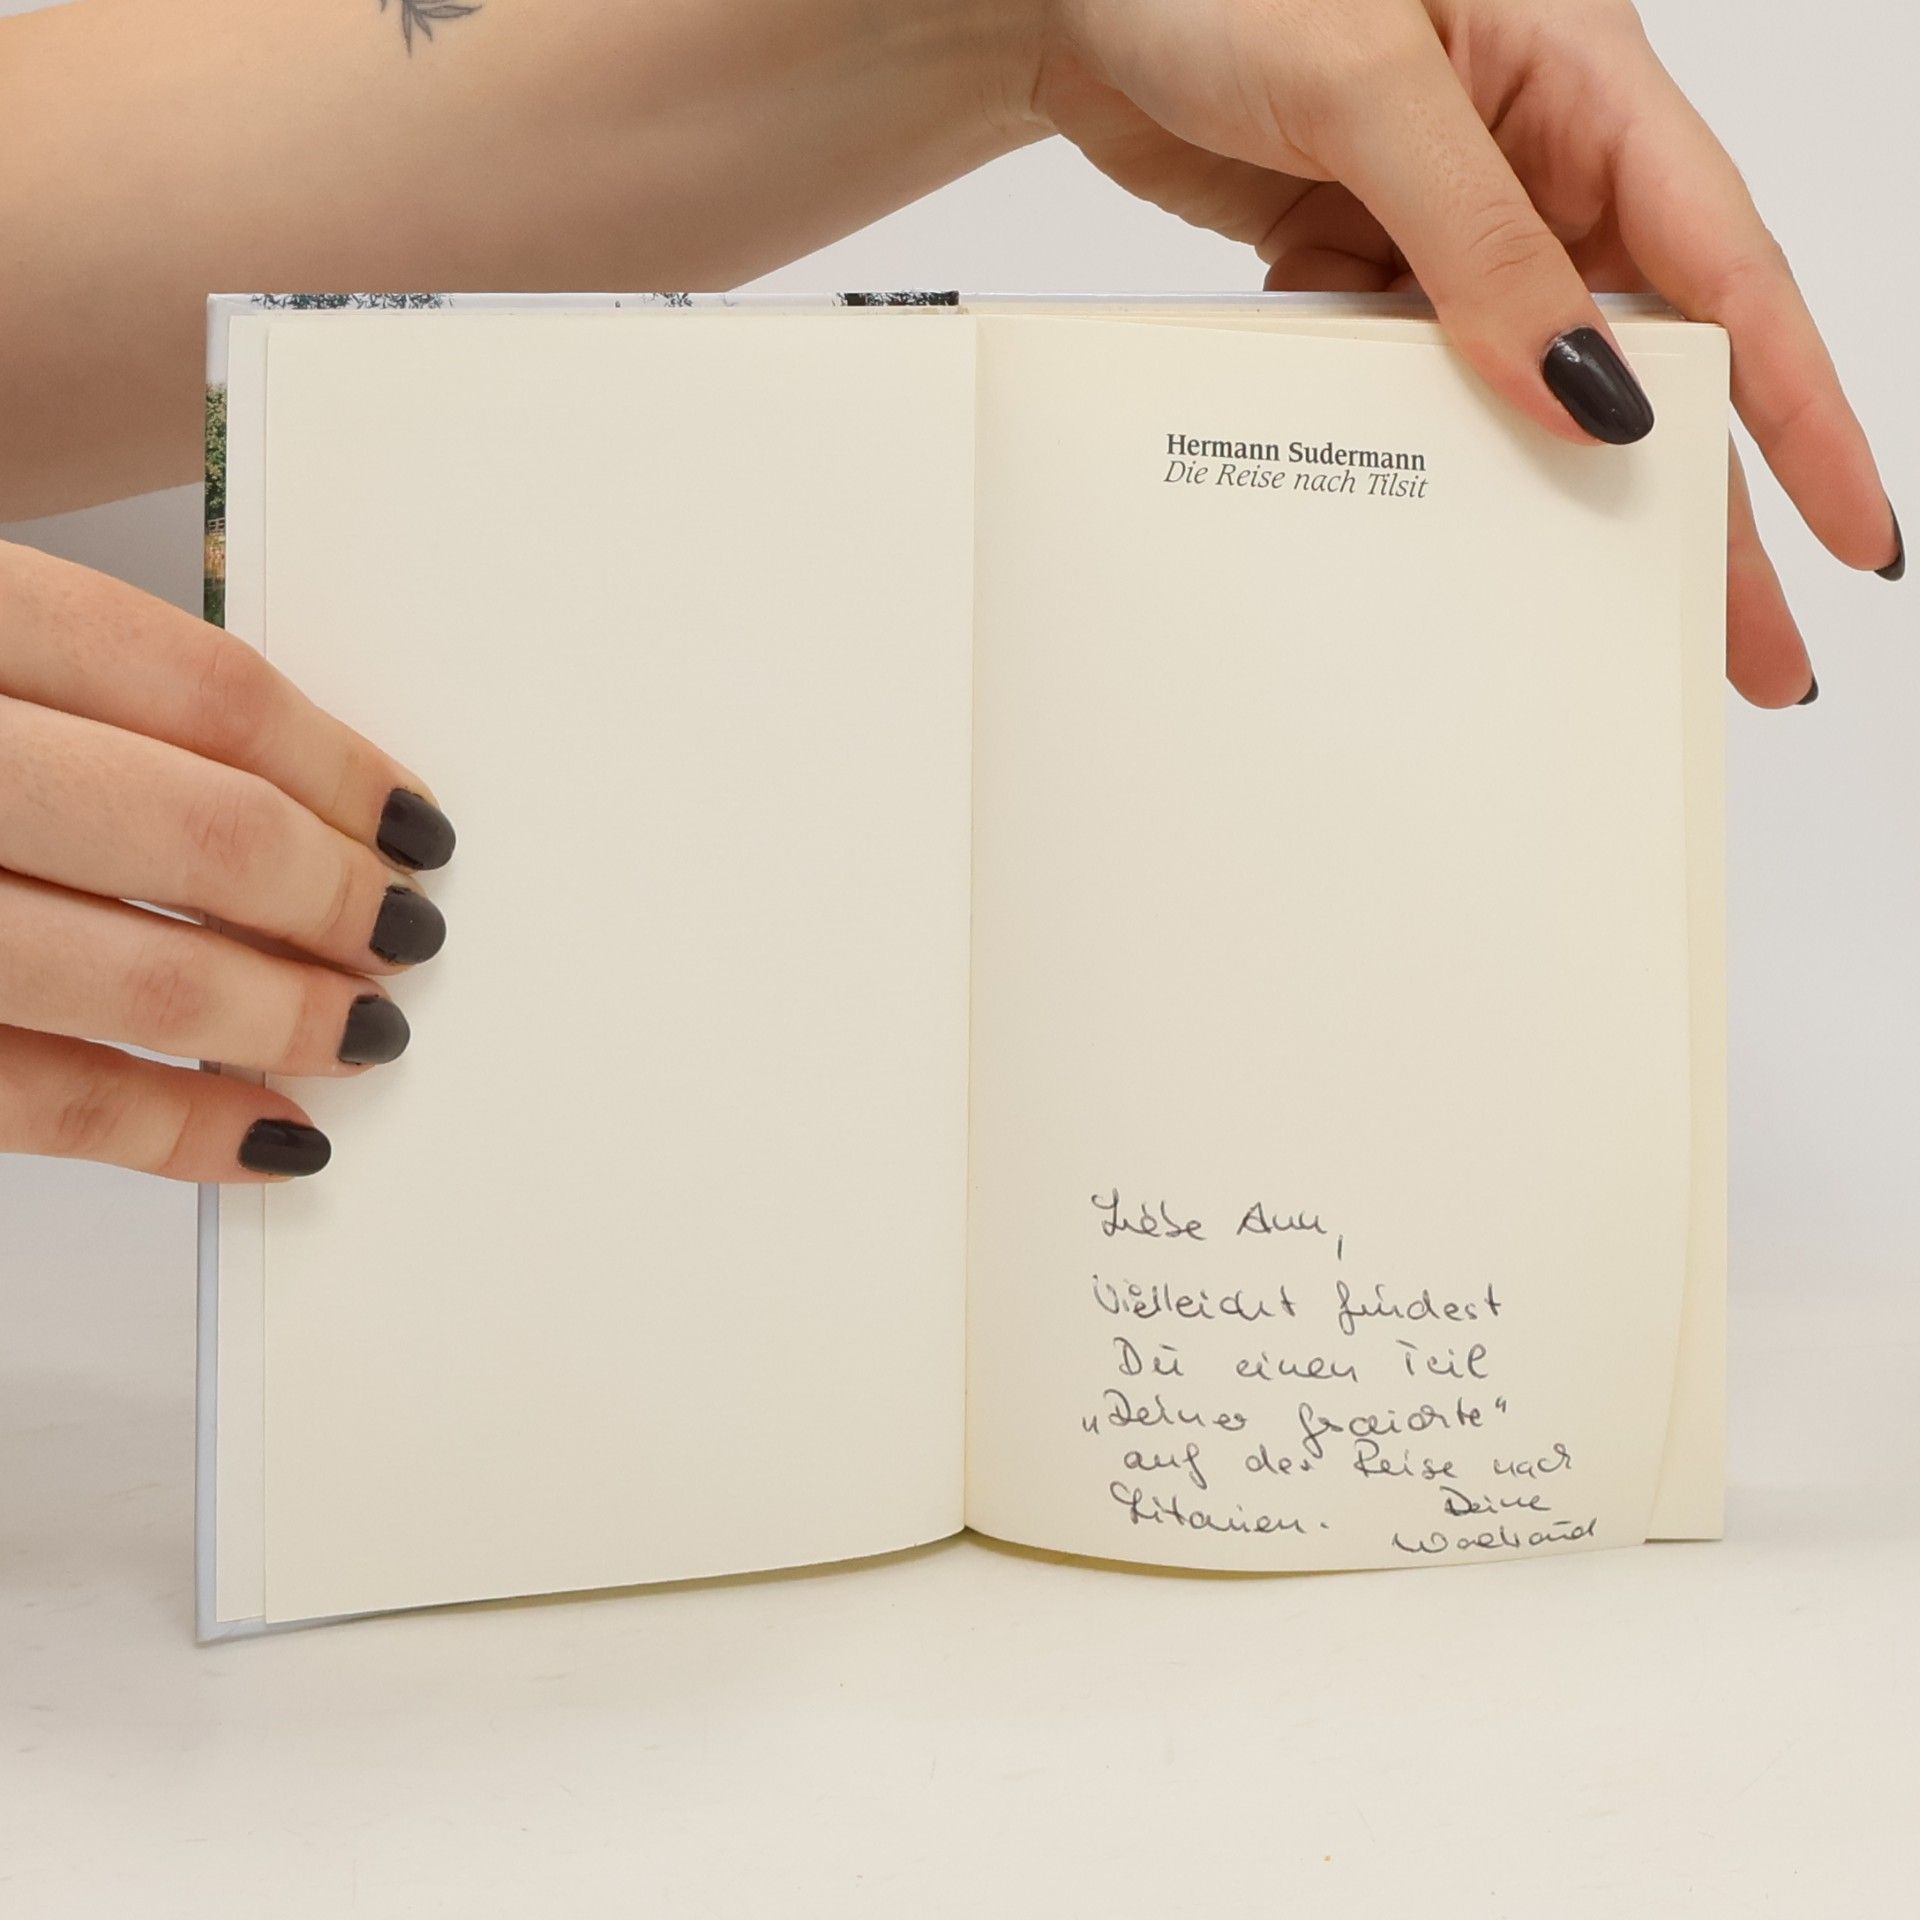 Hermann Sudermann
Die Reise nach Tilsit
Liebe Ann,
Vielleicht findest
Du einen Teil
„Deiner
auf der Reise nach
Litauen.
Deine